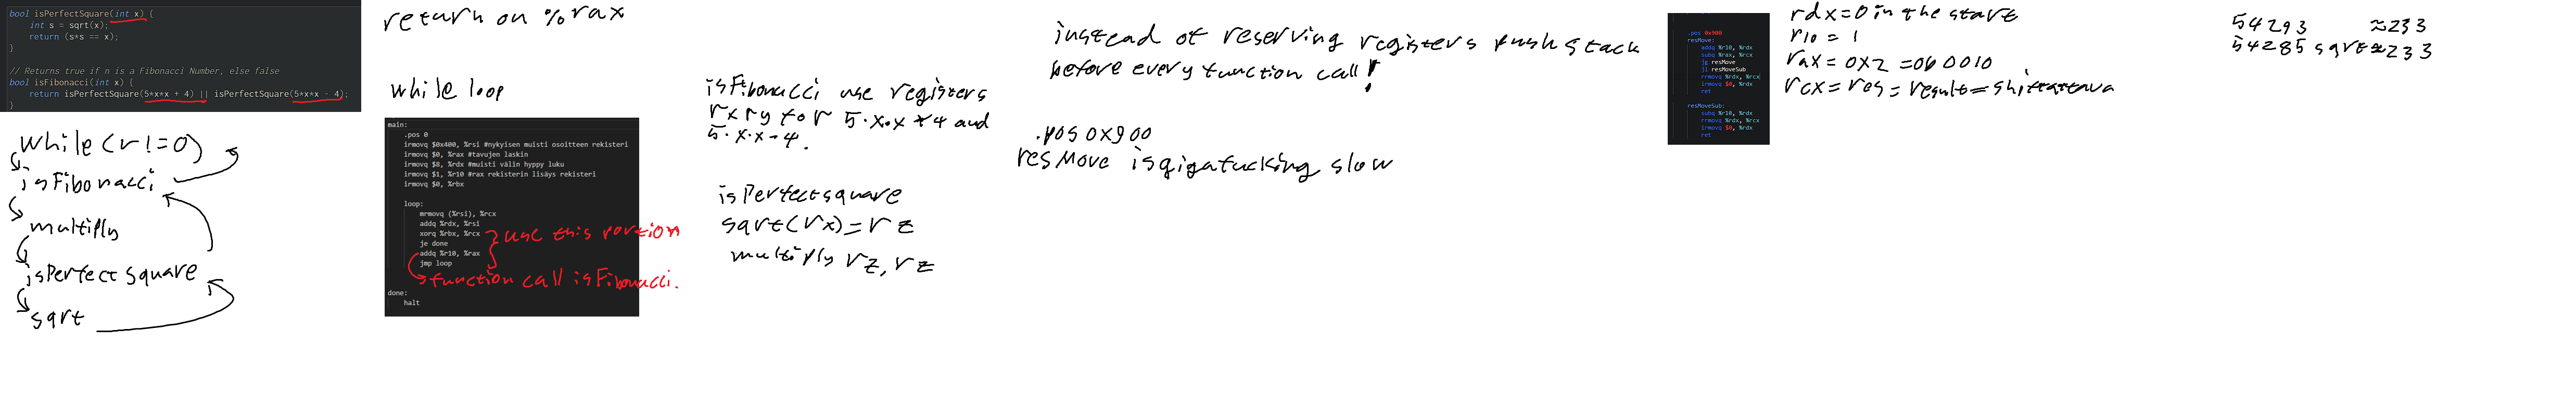 bool isPerfectSquare(int x) {
int s = sqrt(x);
return (s*s == x);
}
// Returns true if n is a Fibonacci Number, else false
bool isFibonacci(int x) {
return isPerfectSquare(5*x*x + 4) || isPerfectSquare(5*x*x - 4);
}
while(r!=0)
isFibonacci
multiply
isPerfect square
sqrt
return on %rax
while loop
main:
.pos 0
irmovq $0x400, %rsi #nykyisen muisti osoitteen rekisteri
irmovq $0, %rax #tavujen laskin
irmovq $8, %rdx #muisti välin hyppy luku
irmovq $1, %r10 #rax rekisterin lisäys rekisteri
irmovq $0, %rbx
loop:
mrmovq (%rsi), %rcx
addq %rdx, %rsi
xorq %rbx, %rcx
je done
addq %r10, %rax
jmp loop
done:
halt
use this portion
function call isFibonacci.
isFibonacci use registers
rx ry for 5·x·x+4 and
5·x·x-4.
isPerfectsquare
sqrt(rx)=rz
multiply rz, rz
instead of reserving registers push stack
before every function call!
.pos 0x900
resMove is gigafucking slow
.pos 0x900
resMove:
addq %r10, %rdx
subq %rax, %rcx
jg resMove
jl resMoveSub
rrmovq %rdx, %rcx
irmovq $0, %rdx
ret
resMoveSub:
subq %r10, %rdx
rrmovq %rdx, %rcx
irmovq $0, %rdx
ret
rdx=0 in the start
r10 = 1
rax = 0x2 = 0b0010
rcx = res = result = shiftattava
54293 ≈233
54285 sqrt≈233